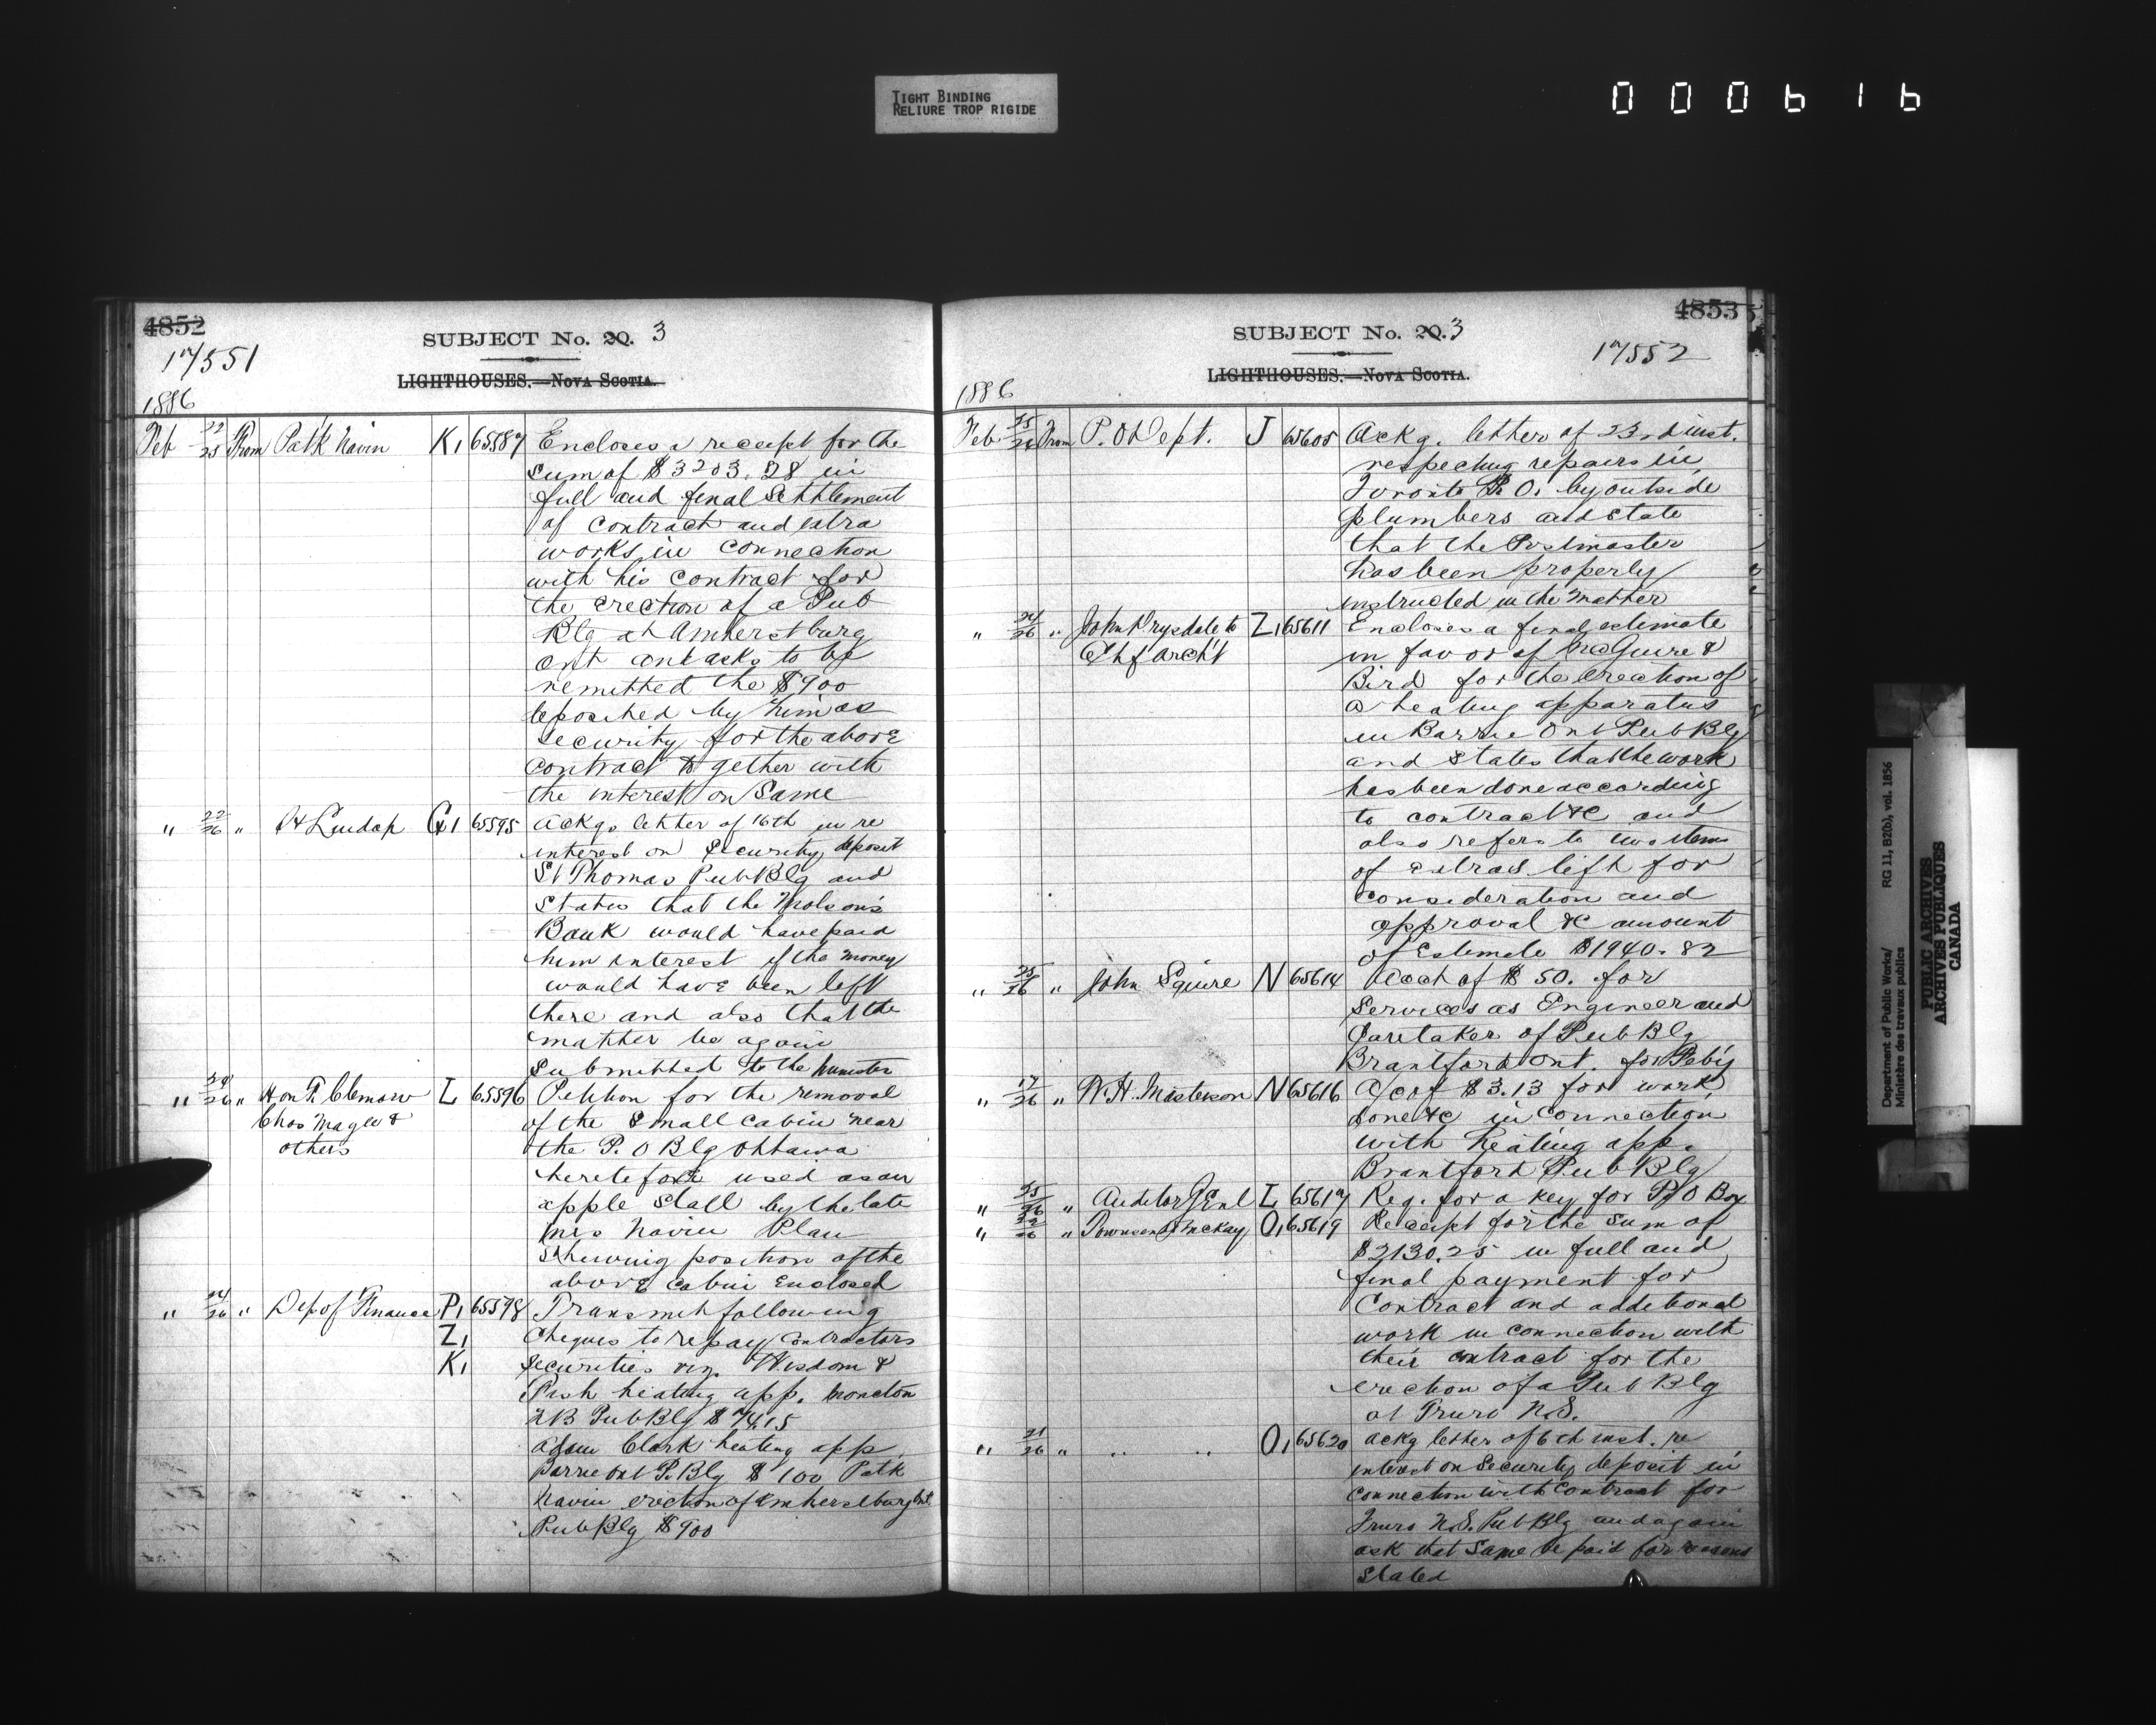 TIGHT BINDING
RELIURE TROP RIGIDE
000616
4852
SUBJECT No. 20. 3
17551
LIGHTHOUSES.—NOVA SCOTIA.
1886
Feb 22/25 From Patk Navin K1 65587 Encloses a receipt for the
sum of $3203.28 in
full and final Settlement
of contract and extra
works in connection
with his contract for
the erection of a Pub
Blg at Amherstburg
Ont and asks to be
remitted the $900
deposited by him as
security for the above
contract together with
the interest on Same
" 22/26 " H Lindop G1 65595 Ackgs letter of 16th in re
interest on Security deposit
St Thomas Pub Blg and
states that the Molson's
Bank would have paid
him interest if the money
would have been left
there and also that the
matter be again
Submitted to the Minister
" 24/26 " Hon F. Clemow L 65596 Petition for the removal
Chas Magee & of the Small cabin near
others the P.O Blg Ottawa
heretofore used as an
apple Stall by the late
Mrs Navin Plan
Shewing position of the
above cabin Enclosed
" 24/26 " Dep of Finance P1 65598 Transmit following
Z1 Cheques to repay contractors
K1 Securities viz. Wisdom &
Fish heating app. Moncton
NB Pub Blg $74.15
Adam Clark heating app
Barrie Ont P. Blg $100 Patk
Navin erection of Amherstburg Ont
Pub Blg $900
4853
SUBJECT No. 20. 3
17552
LIGHTHOUSES.—NOVA SCOTIA.
1886
Feb 25/26 From P.O Dept. J 65605 Ackg. letter of 23rd inst.
respecting repairs in
Toronto P.O. by outside
plumbers and state
that the Postmaster
has been properly
instructed in the matter
" 24/26 " John Drysdale to Z1 65611 Encloses a final estimate
Chf Archt in favor of McGuire &
Bird for the erection of
a heating apparatus
in Barrie Ont Pub Blg
and states that the work
has been done according
to contract &c and
also refers to two items
of extras left for
consideration and
approval &c amount
of Estimate $1940.82
" 25/26 " John Squire N 65614 Acct of $50. for
Services as Engineer and
Caretaker of Pub Blg
Brantford Ont. for Feb'y
" 17/26 " W.H. Masterson N 65616 A/c of $3.13 for work
done &c in connection
with heating app.
Brantford Pub Blg
" 25/26 " Auditor Genl L 65617 Req. for a key for P.O Box
" 22/26 " Townsend & McKay O1 65619 Receipt for the sum of
$2130.25 in full and
final payment for
Contract and additional
work in connection with
their contract for the
erection of a Pub Blg
at Truro N.S.
" 21/26 " " " O1 65620 Ackg letter of 6th inst. re
interest on Security deposit in
connection with contract for
Truro N.S. Pub Blg and again
ask that Same be paid for reasons
stated
Department of Public Works/ RG 11, B2(b), vol. 1856
Ministère des travaux publics
PUBLIC ARCHIVES
ARCHIVES PUBLIQUES
CANADA